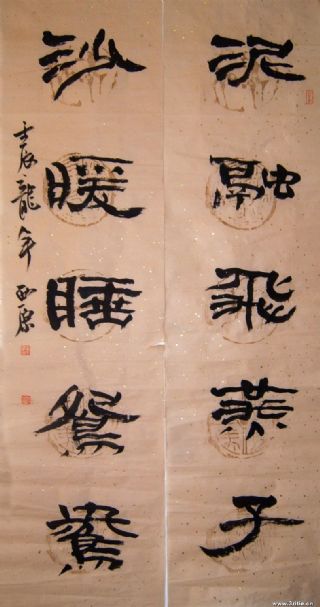 泥融飛燕子
沙暖睡鴛鴦
壬辰龍年
www.zitie.cn